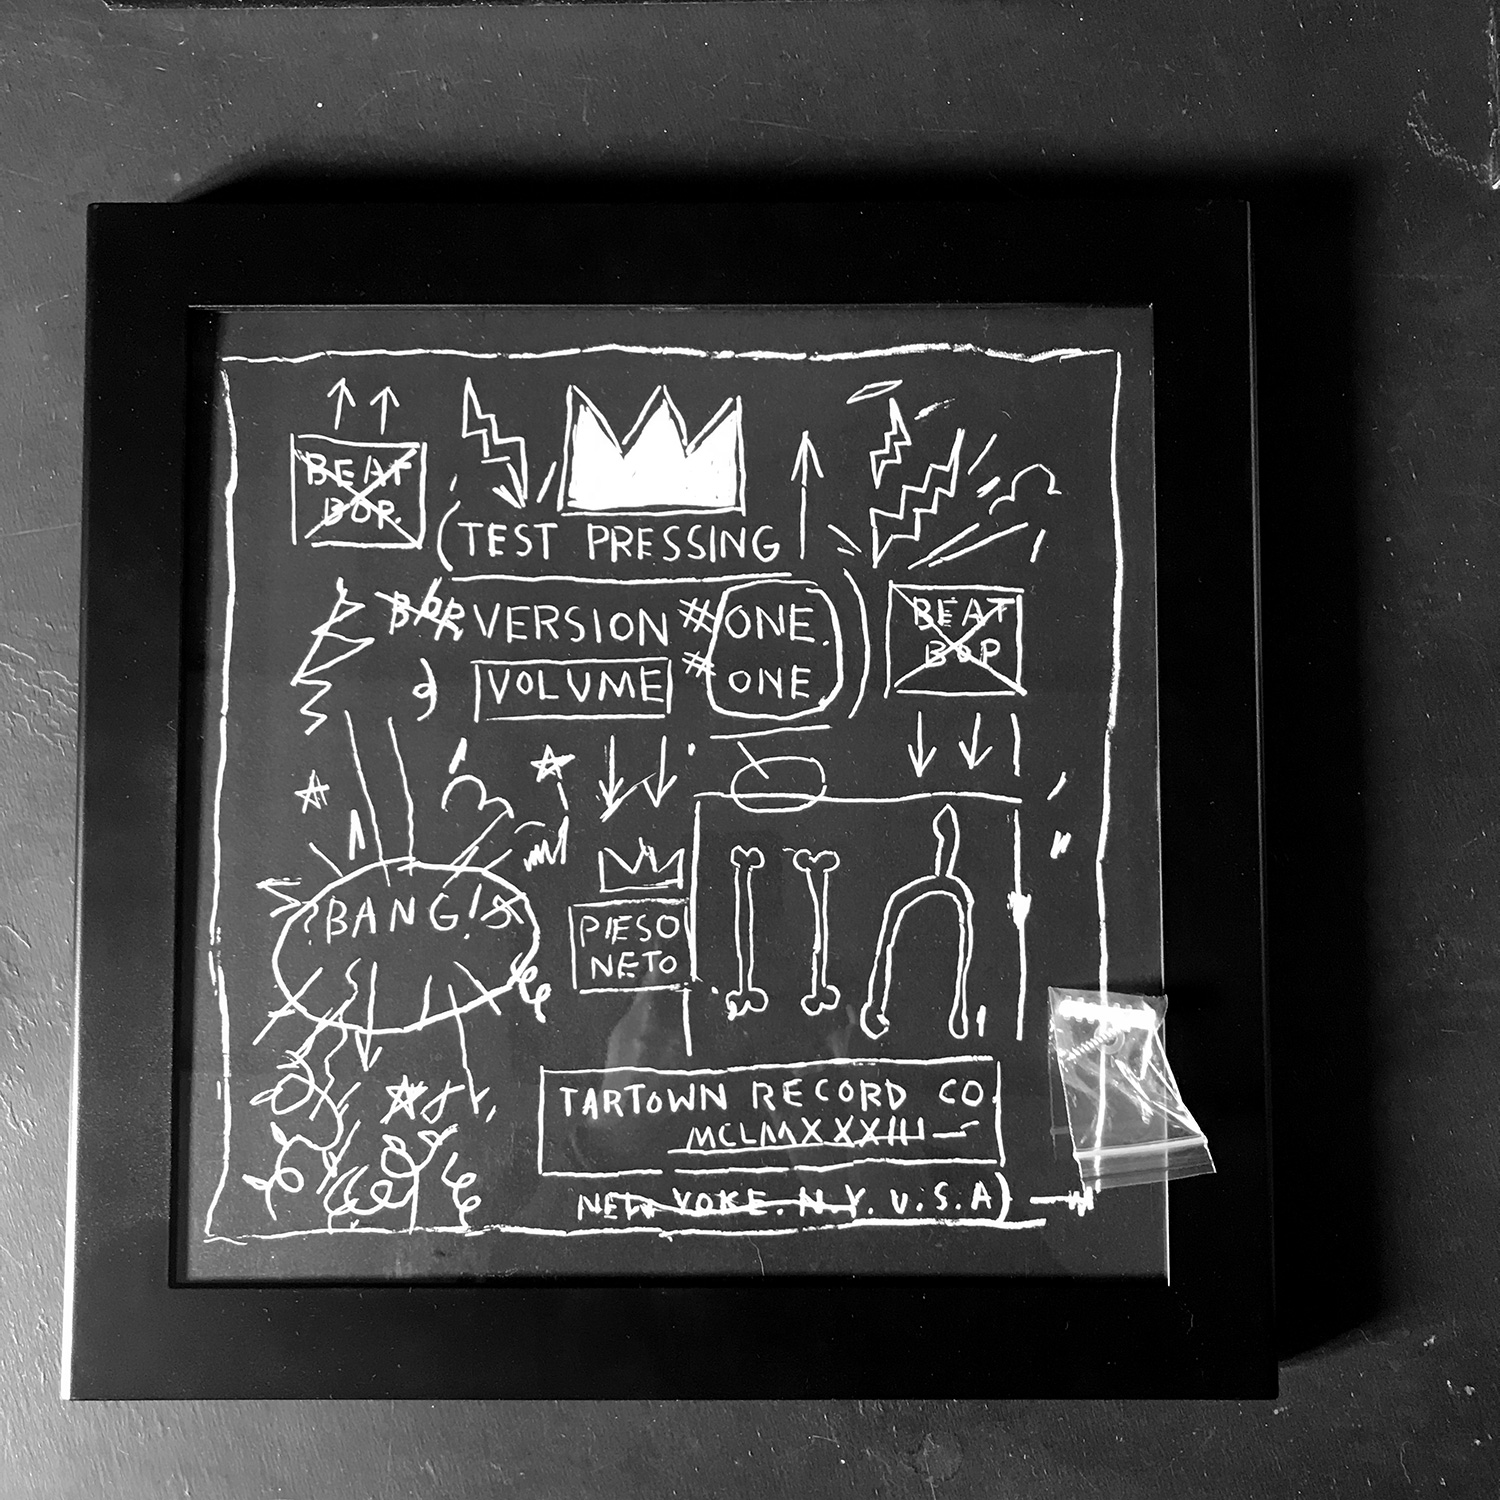 BEAT
BOP.
(TEST PRESSING
BOP VERSION # ONE.
VOLUME # ONE )
BEAT
BOP
?BANG!
PIESO
NETO
TARTOWN RECORD CO.
MCLMXXXIII
NEW YOKE. N.Y. U.S.A)